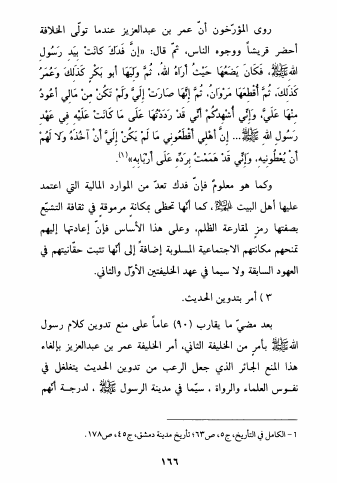 روى المؤرّخون أنّ عمر بن عبدالعزيز عندما تولّى الخلافة
أحضر قريشاً ووجوه الناس، ثمّ قال: «إنَّ فَدَكَ كَانَتْ بِيَدِ رَسُولِ
اللهِ ﷺ، فَكَانَ يَضَعُهَا حَيْثُ أَرَاهُ اللهُ، ثُمَّ وَلِيَهَا أَبو بَكْرٍ كَذَلِكَ وَعُمَرُ
كَذَلِكَ، ثُمَّ أُقْطِعَهَا مَرْوَانُ، ثُمَّ إِنَّهَا صَارَتْ إِلَيَّ وَلَمْ تَكُنْ مِنْ مَالِي أَعْوَدَ
مِنْهَا عَلَيَّ، وَإِنِّي أُشْهِدُكُمْ أَنِّي قَدْ رَدَدْتُهَا عَلَى مَا كَانَتْ عَلَيْهِ فِي عَهْدِ
رَسُولِ اللهِ ﷺ... إِنَّ أَهْلِي أَقْطَعُونِي مَا لَمْ يَكُنْ إِلَيَّ أَنْ آخُذَهُ وَلا لَهُمْ
أَنْ يُعْطُونِيهِ، وَإِنِّي قَدْ هَمَمْتُ بِرَدِّهِ عَلَى أَرْبَابِهِ»(١).
وكما هو معلومٌ فإنّ فدك تعدّ من الموارد المالية التي اعتمد
عليها أهل البيت ﷺ، كما أنّها تحظى بمكانةٍ مرموقةٍ في ثقافة التشيّع
بصفتها رمزٍ لمقارعة الظلم، وعلى هذا الأساس فإنّ إعادتها إليهم
تمنحهم مكانتهم الاجتماعية المسلوبة إضافةً إلى أنّها تثبت حقّانيتهم في
العهود السابقة ولا سيما في عهد الخليفتين الأوّل والثاني.
٣) أمر بتدوين الحديث.
بعد مضيّ ما يقارب (٩٠) عاماً على منع تدوين كلام رسول
الله ﷺ بأمرٍ من الخليفة الثاني، أمر الخليفة عمر بن عبدالعزيز بإلغاء
هذا المنع الجائر الذي جعل الرعب من تدوين الحديث يتغلغل في
نفوس العلماء والرواة ، سيّما في مدينة الرسول ﷺ ، لدرجة أنّهم
١- الكامل في التأريخ، ج٥، ص٦٣؛ تأريخ مدينة دمشق، ج٤٥، ص١٧٨.
١٦٦